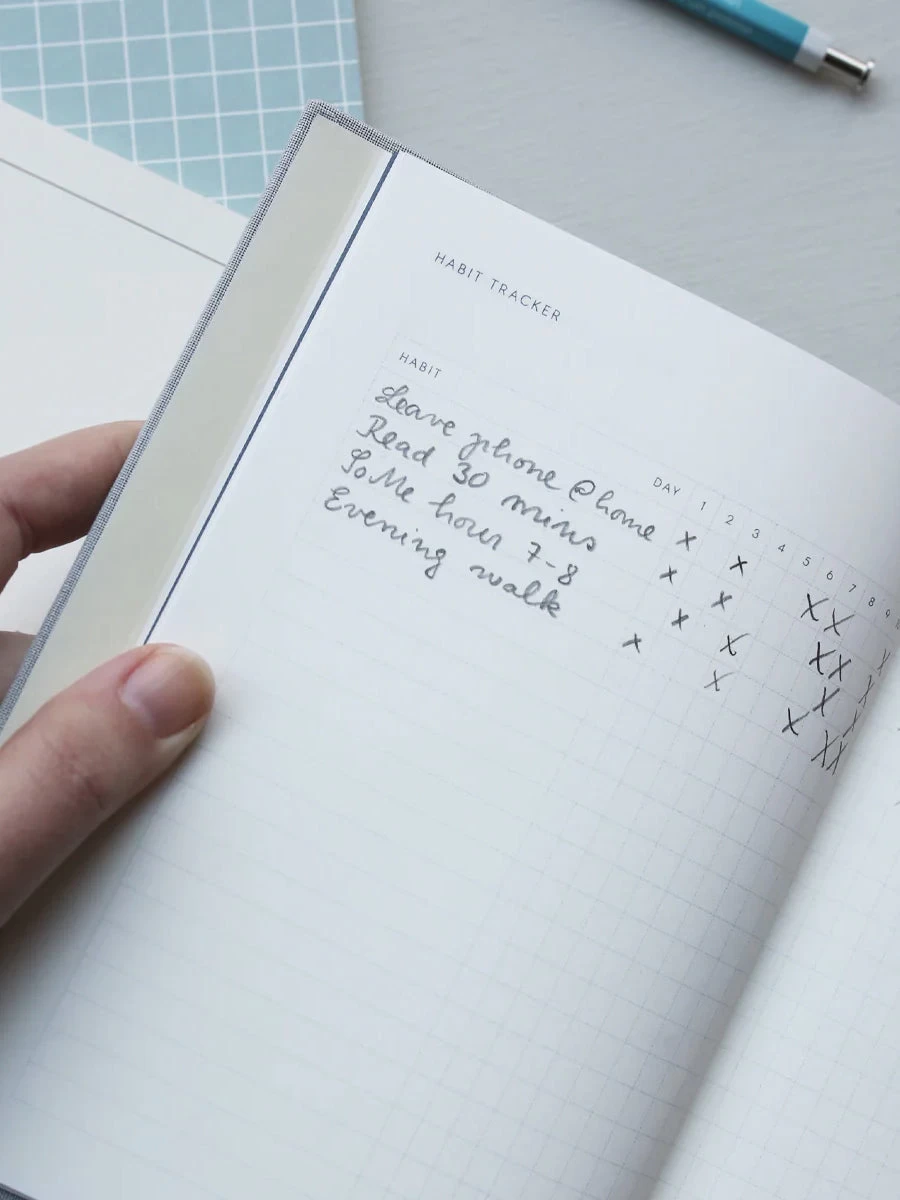 HABIT TRACKER
HABIT
DAY 1 2 3 4 5 6 7 8 9
Leave phone @home X X X X X
Read 30 mins X X X X X
SoMe hour 7-8 X X X X
Evening walk X X X X X